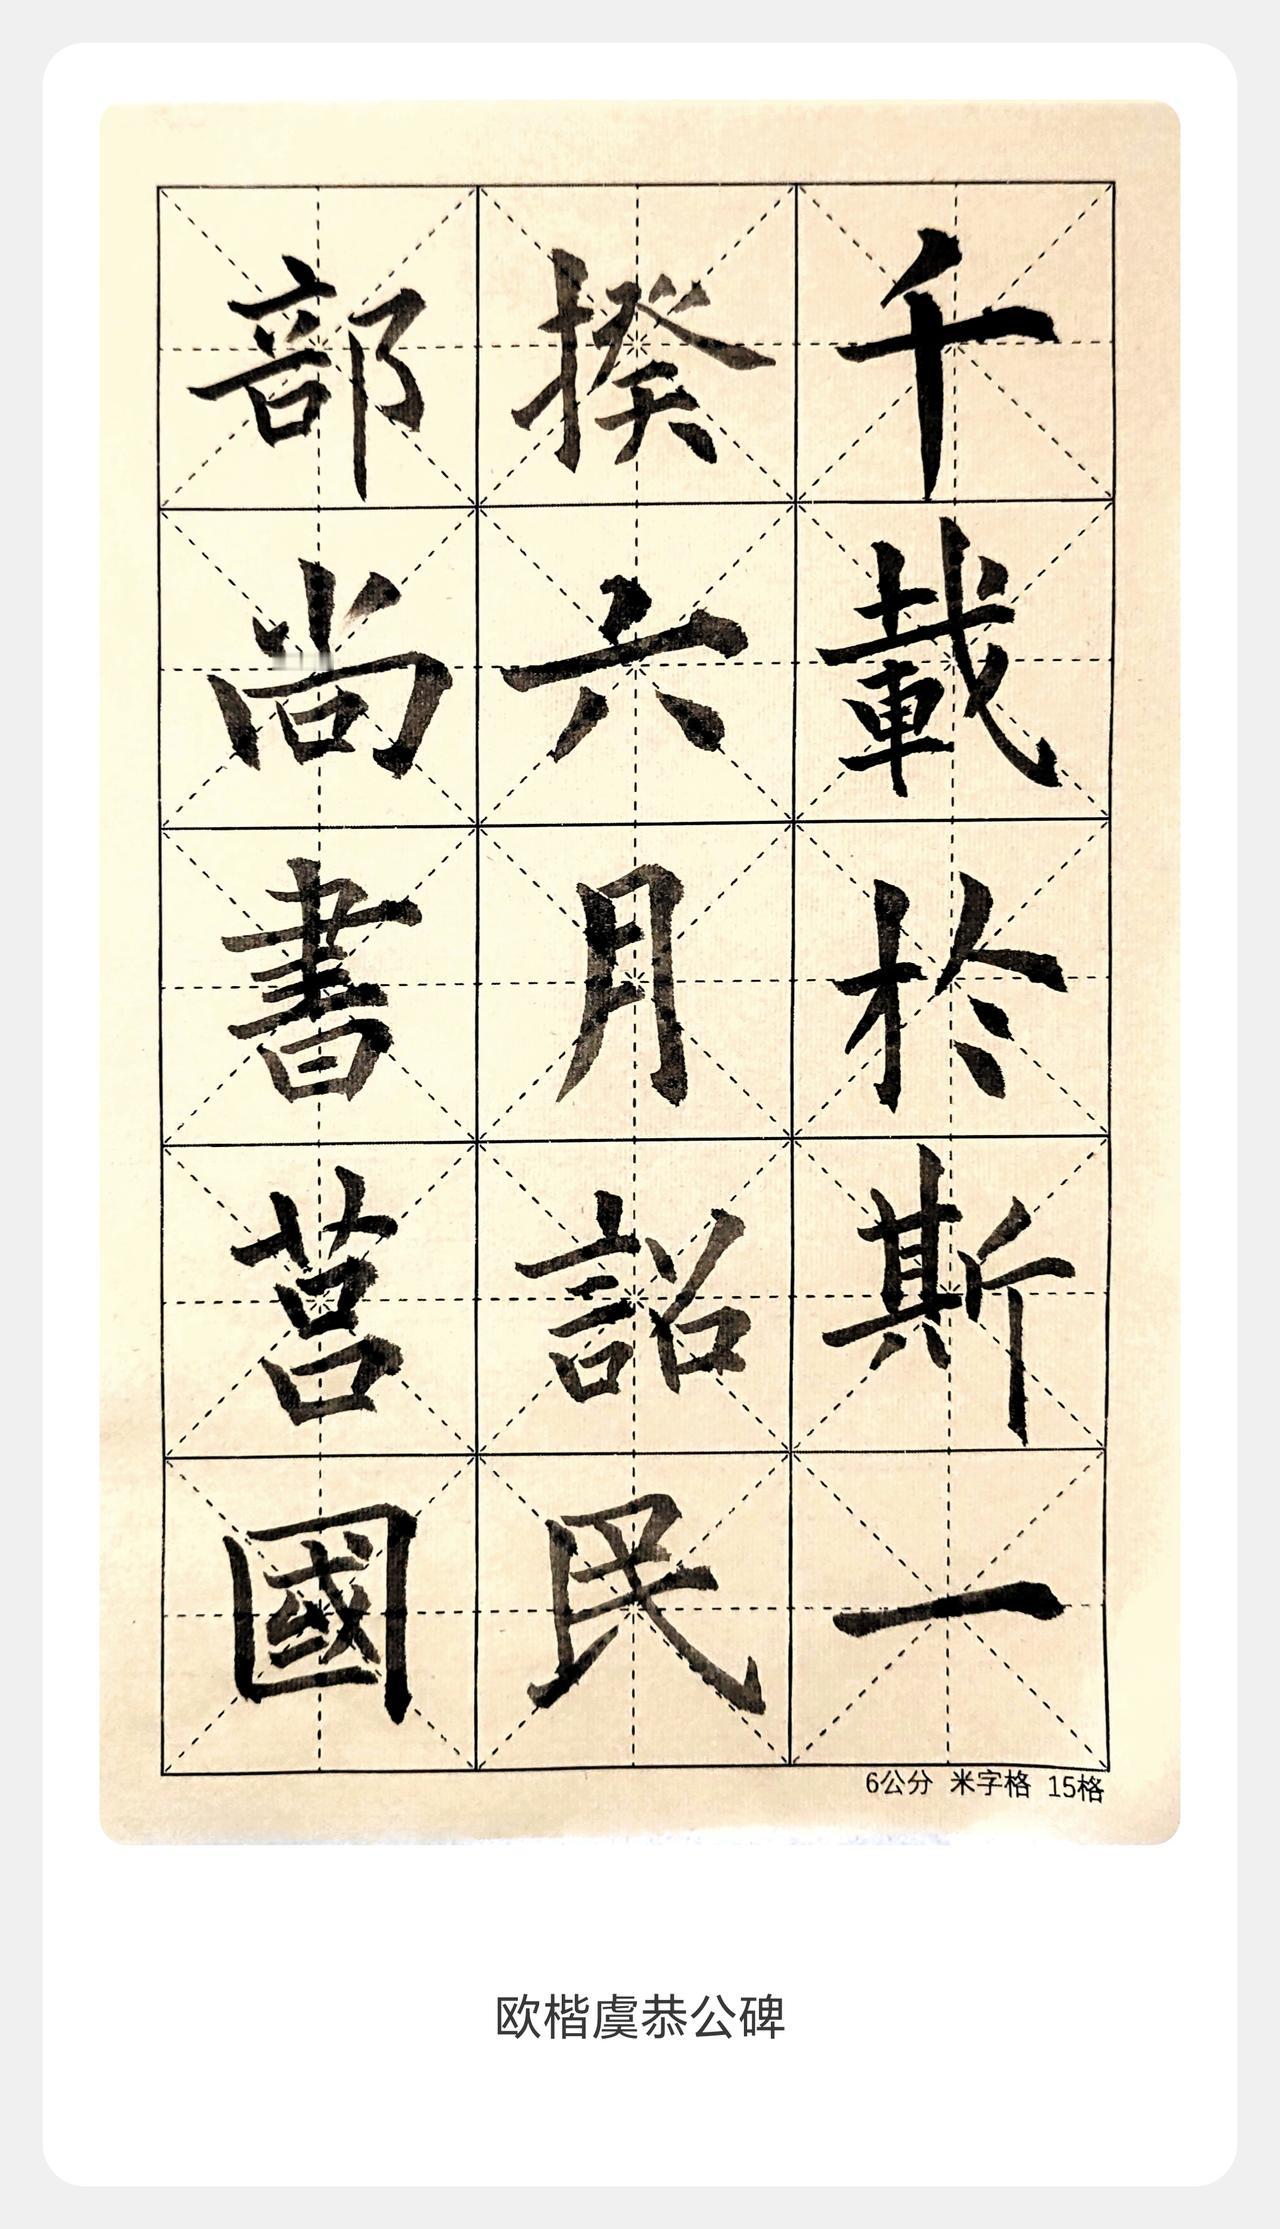 千載於斯一
揆六月詔民
部尚書莒國
6公分 米字格 15格
欧楷虞恭公碑